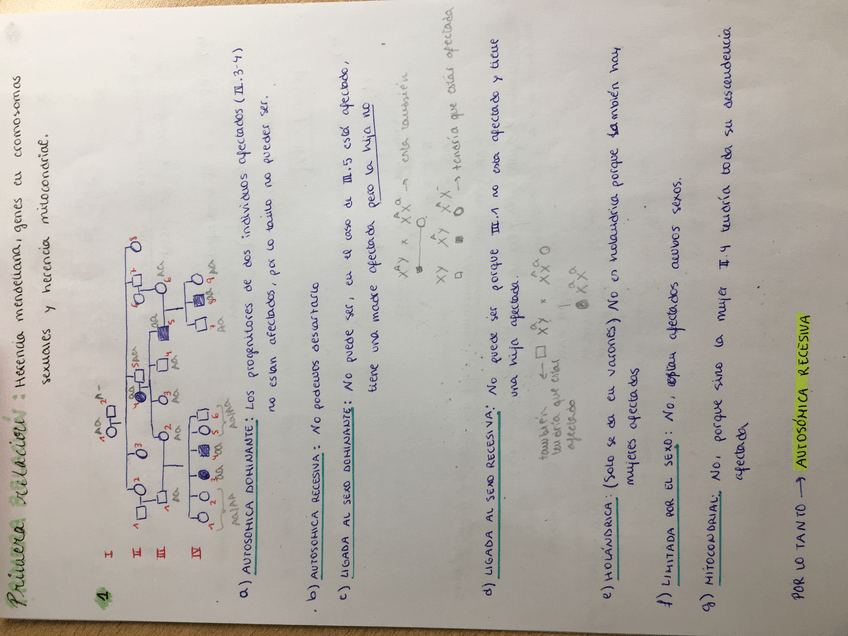 Primera relación: Herencia mendeliana, genes en cromosomas
sexuales y herencia mitocondrial.
1
I
1 Aa 2 A-
II
1 2 3 4 aa 5 Aa 6 7 8
III
1 Aa 2 Aa 3 Aa 4 Aa 5 aa 6 Aa
IV
1 2 3 4 5 6 7 8 9
Aa/AA aa aa Aa/AA Aa aa Aa
a) AUTOSÓMICA DOMINANTE: Los progenitores de dos individuos afectados (IV.3-4)
no estan afectados, por lo tanto no pueder ser.
b) AUTOSÓMICA RECESIVA: No podemos descartarlo
c) LIGADA AL SEXO DOMINANTE: No puede ser, en el caso de III.5 está afectado,
tiene una madre afectada pero la hija no
XᴬY x XᴬXᵃ → esta también
XY XᴬY XᴬX⁻ → tendría que estar afectada
d) LIGADA AL SEXO RECESIVA: No puede ser porque III.1 no esta afectado y tiene
una hija afectada.
también ← □ XᵃY x XᴬXᵃ O
tendría que estar
afectado
XᵃXᵃ
e) HOLÁNDRICA: (Solo se da en varones) No es holandrica porque también hay
mujeres afectadas
f) LIMITADA POR EL SEXO: No, están afectados ambos sexos.
g) MITOCONDRIAL: No, porque sino la mujer II.4 tendría toda su descendencia
afectada
POR LO TANTO → AUTOSÓMICA RECESIVA